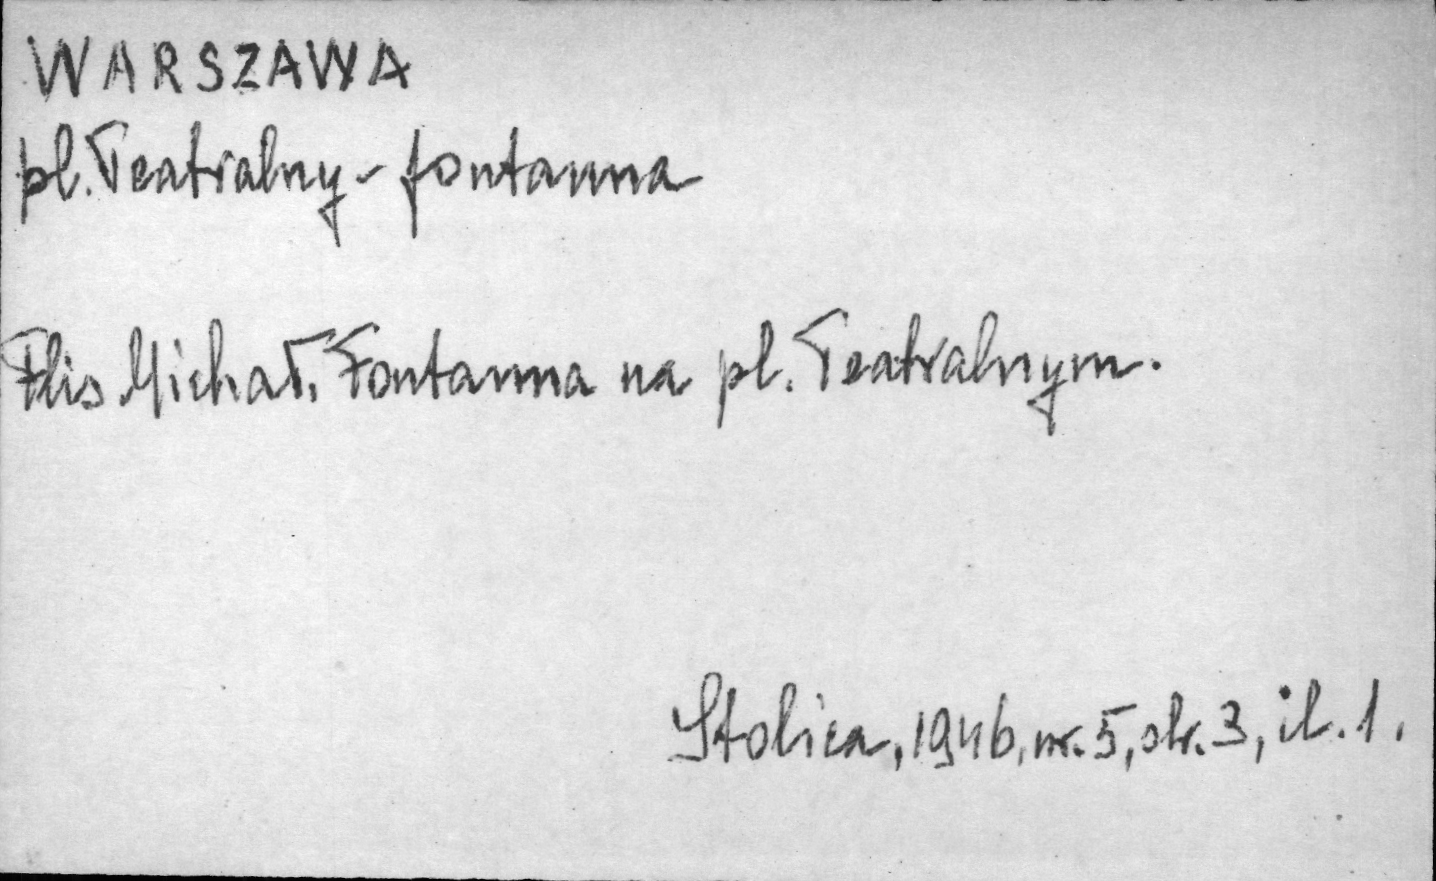 WARSZAWA
pl. Teatralny - fontanna
Flis Michał. Fontanna na pl. Teatralnym.
Stolica, 1946, nr. 5, str. 3, il. 1.